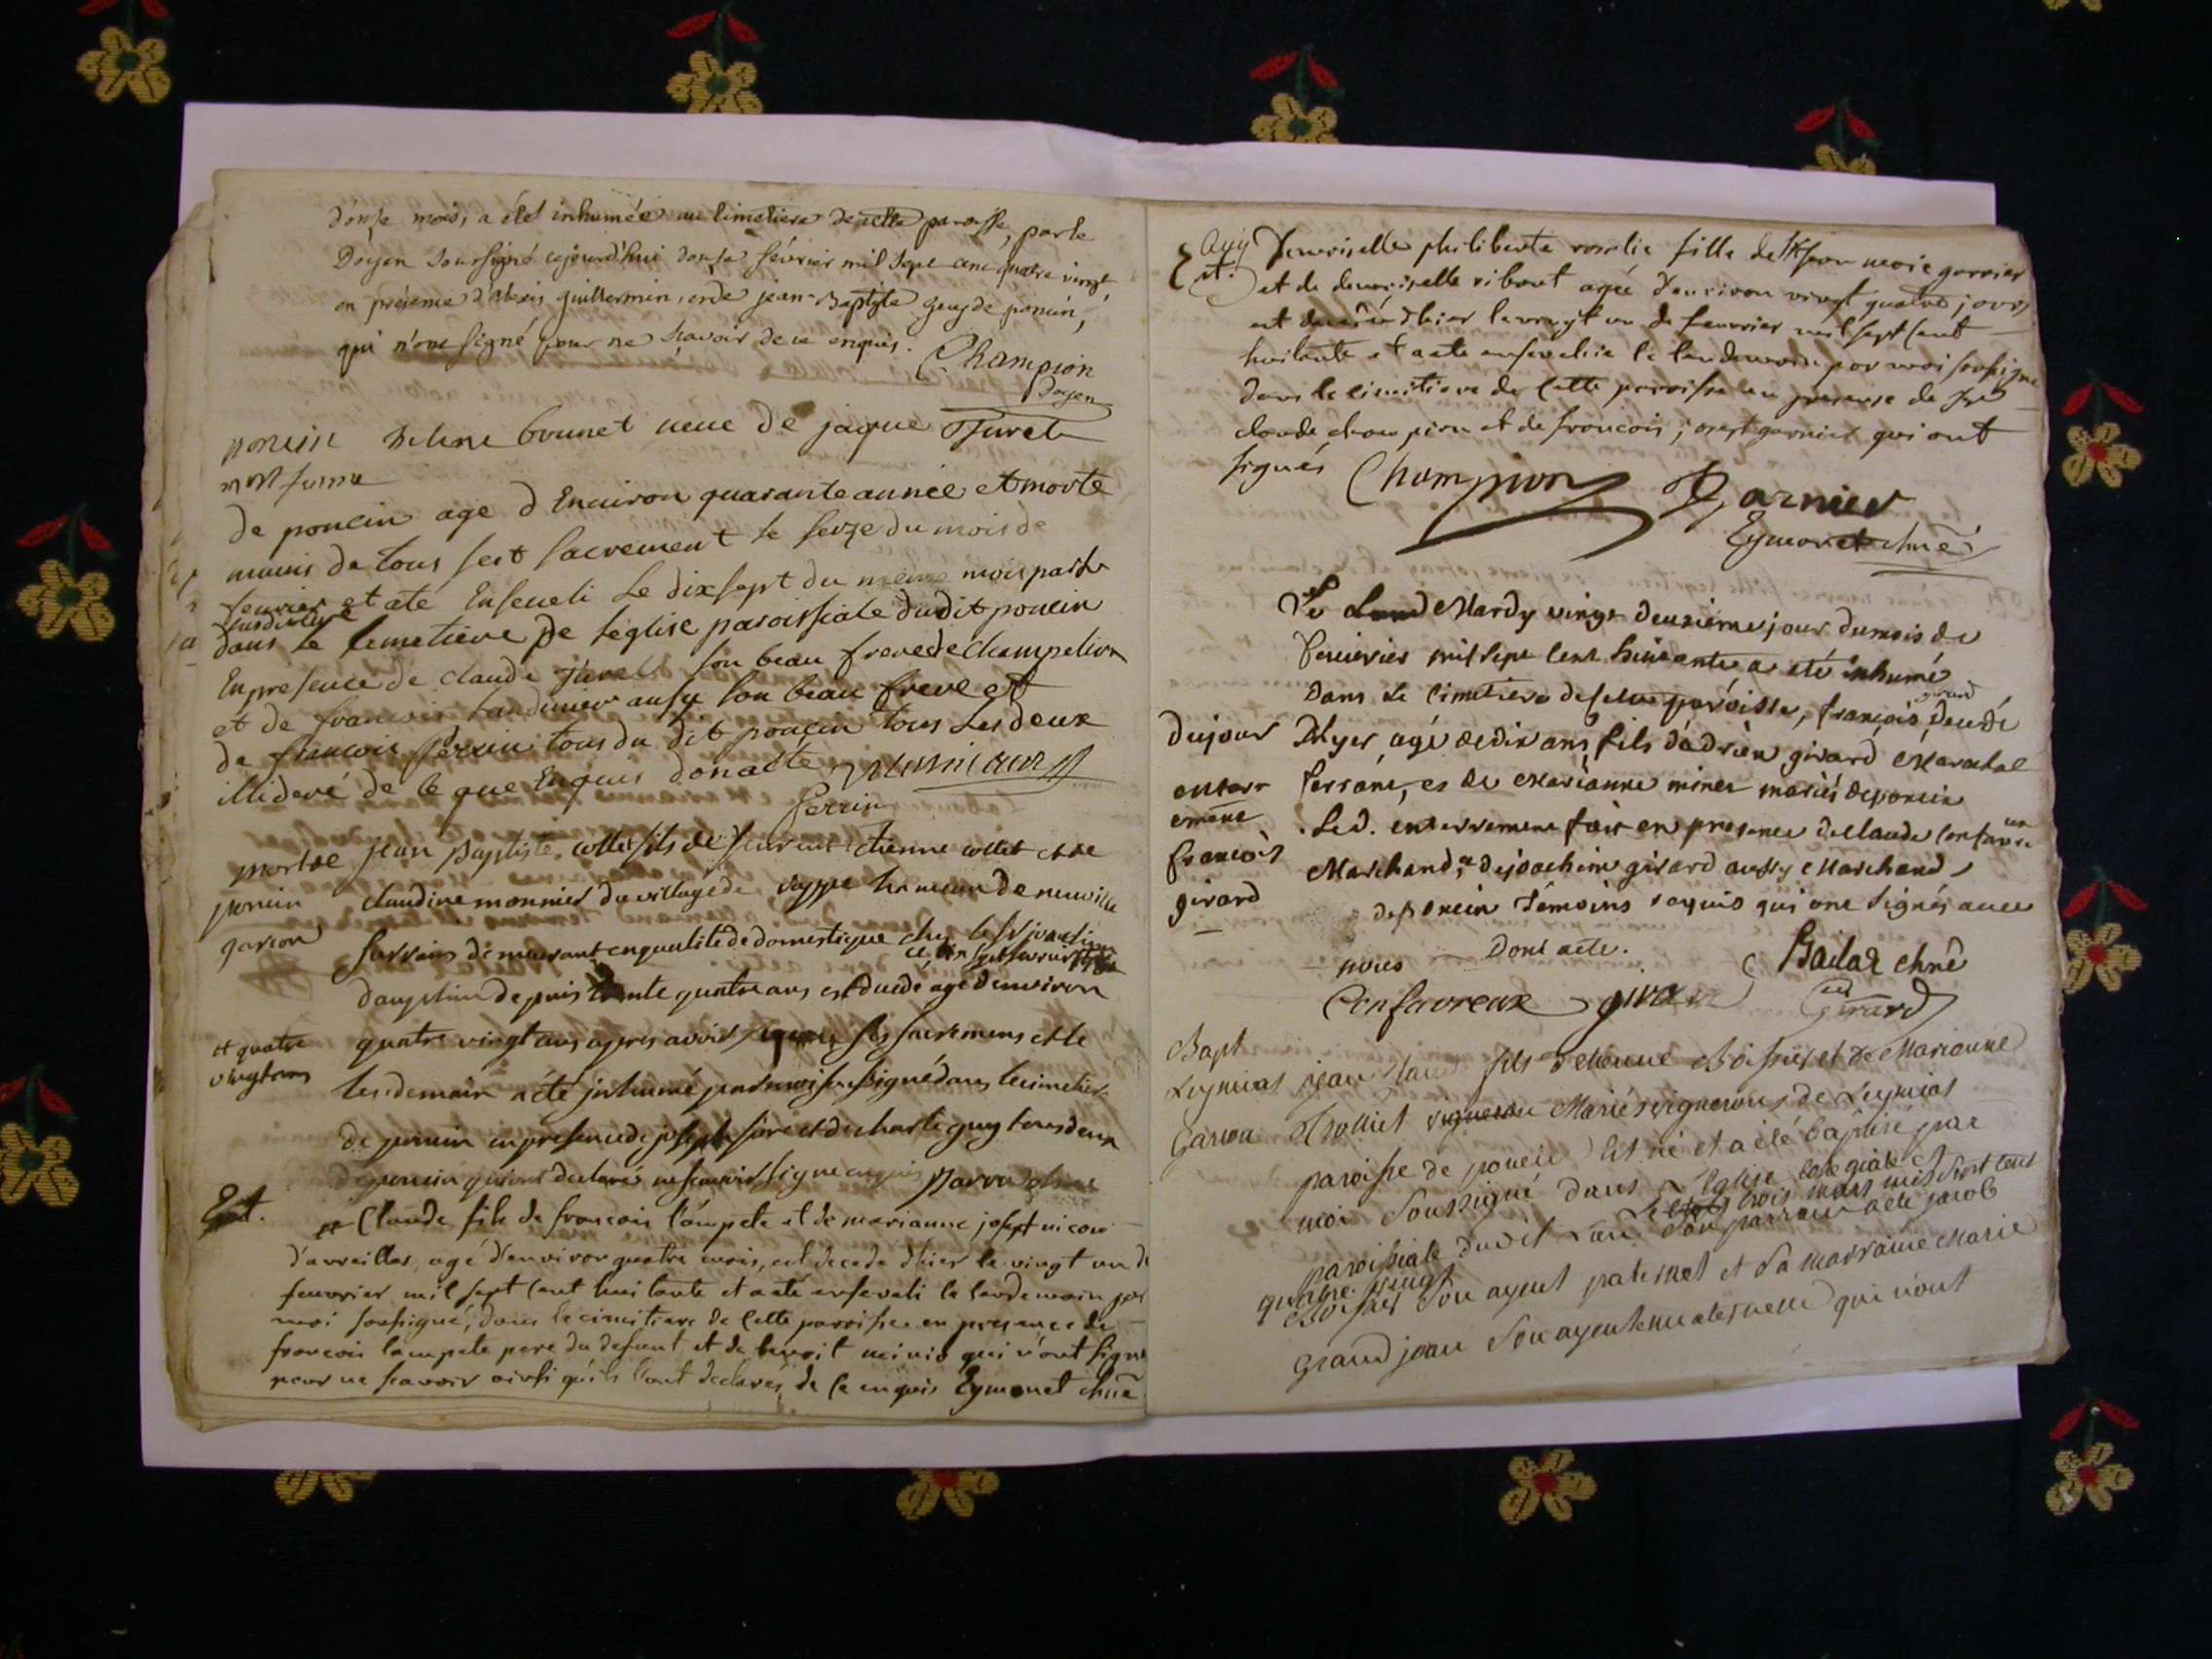 donze mois, a été inhumée au cimetiere de cette paroisse, par le
Doyen soussigné cejourd'hui donze février mil sept cent quatre vingt,
en présence d'Alexis guillermin, et de jean-Baptiste guy de poncin,
qui n'ont signé pour ne sçavoir de ce enquis.
Champion
Doyen
poncin
mort femme
brunet veuve de jaque Juret
de poncin age d Enuiron quarante année et morte
munis de tous sest sacrement le seize du mois de
feurier et ate Enseueli Le dix sept du meme mois par le
dans le cimetiere de leglise paroissiale dudit poncin
En presence de claude Juret son beau frere de
et de francois tandinier ausy son beau frere et
de francois Perrin tous du dit poncin tous les deux
de ce que Enquis don acte
Perrin
mortde
poncin
garcon
jean Baptiste collet fils de etienne collet et de
claudine monnier du village de de neuville
demeurant en qualite de domestique chez le Sr
dauphin depuis trente quatre ans est decédé agé denviron
et quatre
vingt ans
quatre vingt ans apres avoir reçu ses sacremens et le
lendemain a été jnhumé par moi soussigné dans le cimetiere
de poncin en presence de joseph et de charle guy tous deux
de poncin qui ont declarés ne scauoir signe enquis
Ent.
Claude fils de francois lampete et de marianne josept nicou
d'avreilles, agé d'environ quatre mois, est decede d'hier le vingt un de
feuvrier mil sept cent huitante et a ete enseveli le lendemain par
moi soussigné, dans le cimitiere de cette paroisse en presence de
francois lampete pere du defunt et de benoit qui n'ont signé
pour ne scavoir ainsi qu'ils l'ont declarés, de ce enquis Eymonet chne
Demoiselle philiberte rosalie fille de garnier
et de demoiselle ribout agée d'environ vingt quatre jours
est decedée d'hier le vingt un de feuvrier mil sept cent
huitante et a ete ensevelie le lendemain par moi soussigné
dans le cimitiere de cette paroisse en presence de Srs
claude champion et de francois josept garnier qui ont
signés
Champion Garnier
Eymonet chne
Le Mardy vingt deuxième jour du mois de
feuvrier mil sept cent huitante a été inhumé
Dans le cimetiere de cette paroisse, françois girard, decedé
Dujour
enterr
ement
françois
girard
D'hyer, agé de dix ans, fils d'adrien girard Marechal
ferrant, et de Marianne minet mariés de poncin
Led. enterrement fait en presence de claude confavreux
Marchand, et de joachim girard aussy Marchand
de poncin Témoins requis qui ont signés avec
nous Dont acte.
Bailat chne
Confavreux girard Girard
Bapt
Leymiat
Garcon
jean fils d'etienne Boisset et de Marianne
Trolliet Mariés vignerons de Leymiat
paroisse de poncin Est né et a eté baptisé par
moi Soussigné dans L'Eglise Collegiale et
paroissiale dudit Lieu Le trois mars mil sept cent
quatre vingt Son parrain a eté jacob
Boisset Son ayeul paternel et Sa marraine Marie
Grandjean Son ayeule maternelle qui n'ont